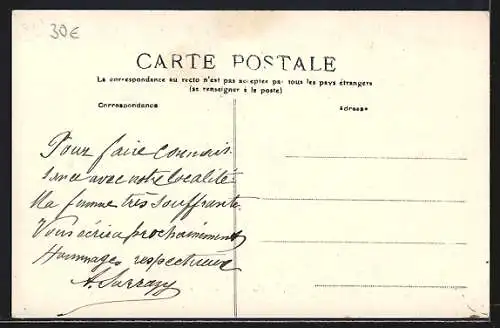 30€
CARTE POSTALE
La correspondance au recto n'est pas acceptée par tous les pays étrangers
(se renseigner à la poste)
Correspondance
Adresse
Pour faire connais-
sance avec notre localité
Ma femme très souffrante
Vous écrira prochainement
Hommages respectueux
A. Sarrazy